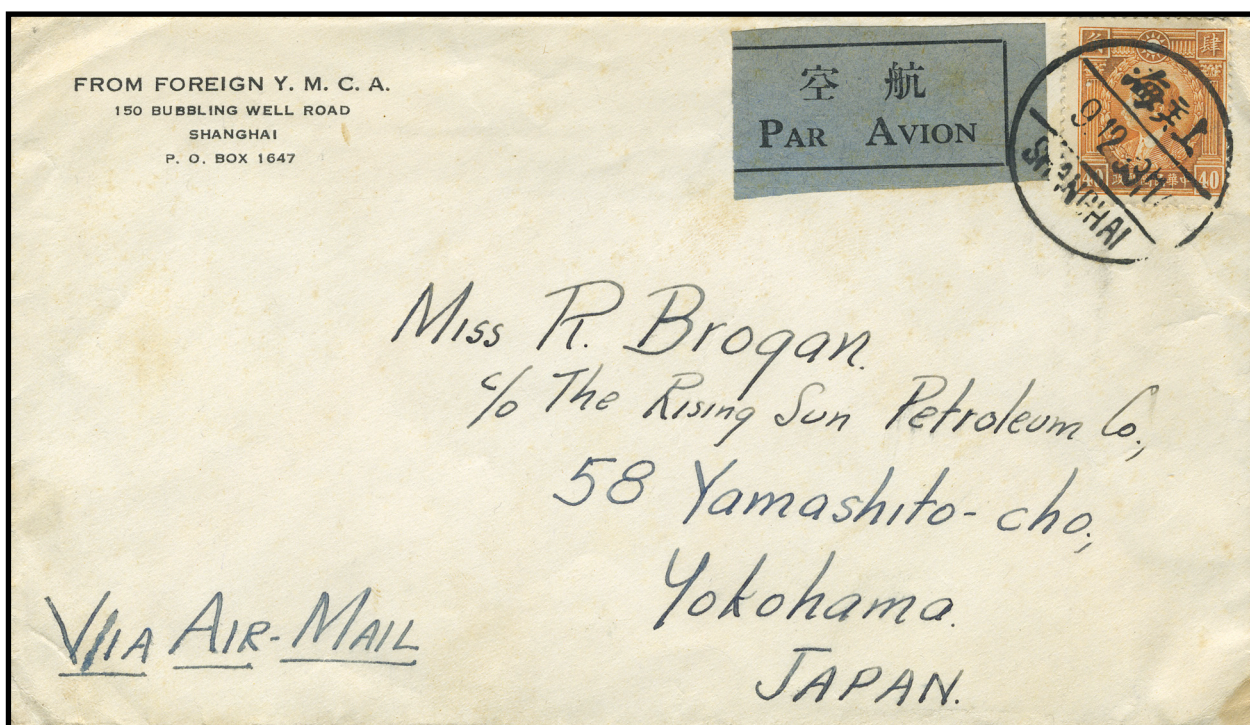 FROM FOREIGN Y. M. C. A.
150 BUBBLING WELL ROAD
SHANGHAI
P. O. BOX 1647
空 航
PAR AVION
肆
上海
9.12
SHANGHAI
40
40
Miss R. Brogan.
c/o The Rising Sun Petroleum Co.,
58 Yamashito-cho,
Yokohama.
JAPAN.
VIA AIR-MAIL